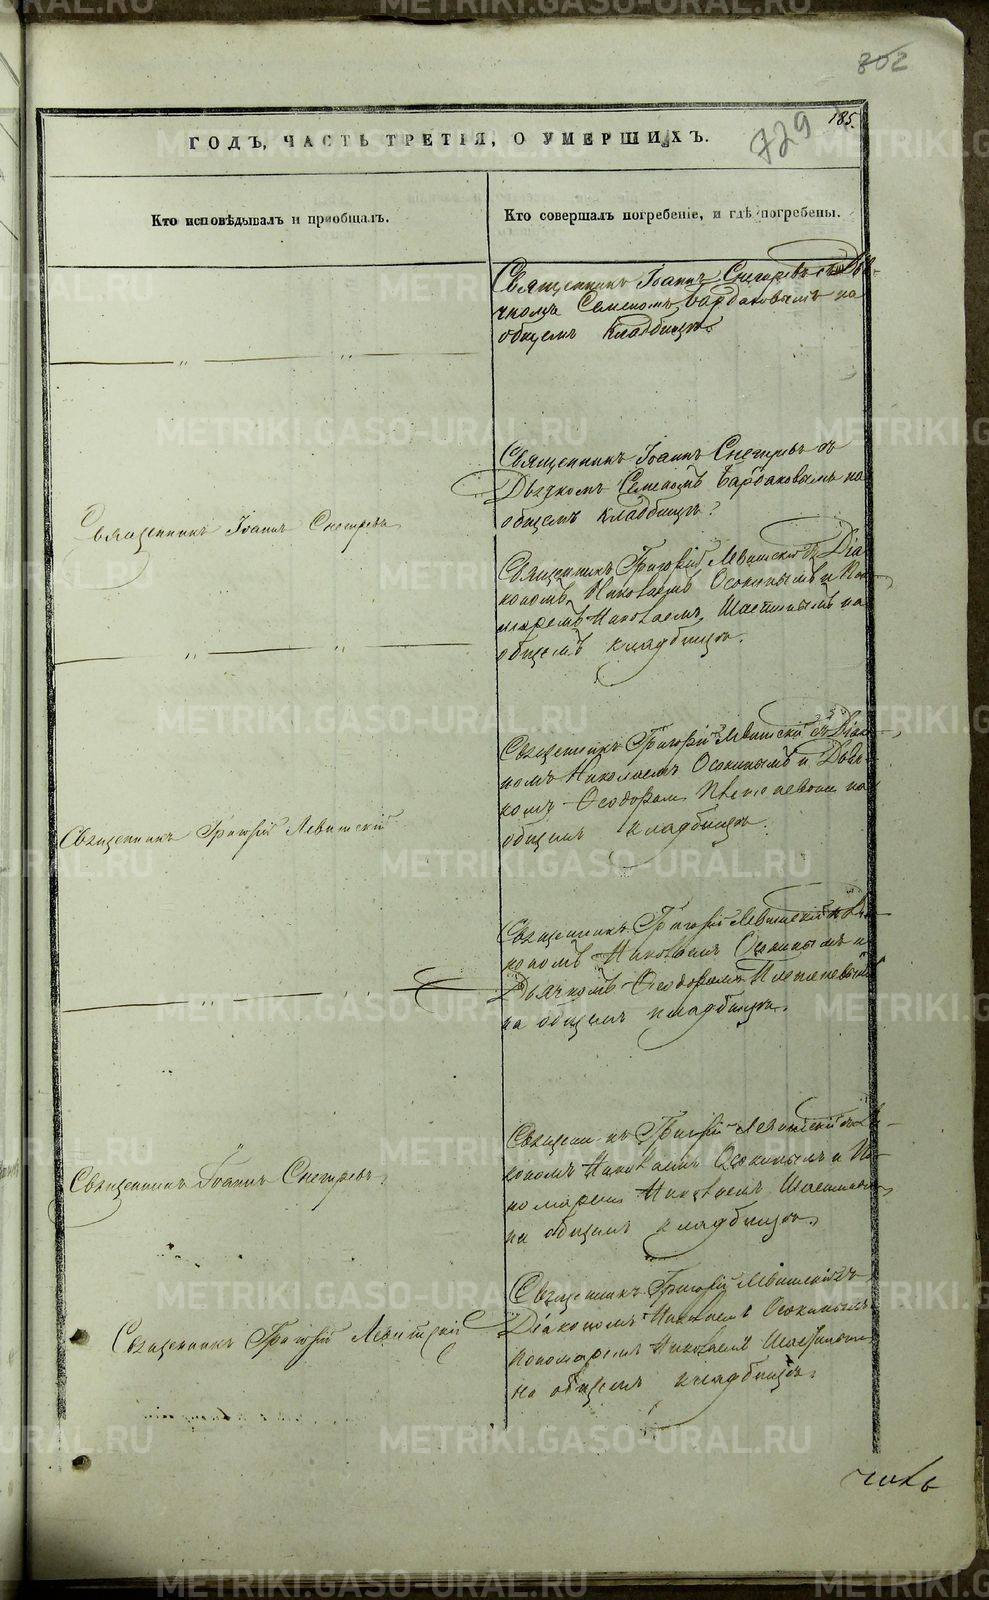 METRIKI.GASO-URAL.RU
802
185.
729
ГОДЪ, ЧАСТЬ ТРЕТІЯ, О УМЕРШИХЪ.
Кто исповѣдывалъ и пріобщалъ.
Кто совершалъ погребеніе, и гдѣ погребены.
Священникъ Іоаннъ Снегиревъ съ Дья-
чкомъ Семеномъ Барбаковымъ на
общемъ кладбищѣ.
Священникъ Іоаннъ Снегиревъ
Священникъ Іоаннъ Снегиревъ съ
Дьячкомъ Семеномъ Барбаковымъ на
общемъ кладбищѣ.
Священникъ Григорій Левитскій съ Діа-
кономъ Николаемъ Осокинымъ и По-
номаремъ Николаемъ на
общемъ кладбищѣ.
Священникъ Григорій Левитскій
Священникъ Григорій Левитскій съ Діако-
номъ Николаемъ Осокинымъ и Дьяч-
комъ Ѳеодоромъ на
общемъ кладбищѣ.
Священникъ Григорій Левитскій съ Діа-
кономъ Николаемъ Осокинымъ и
Дьячкомъ Ѳеодоромъ
на общемъ кладбищѣ.
Священникъ Іоаннъ Снегиревъ
Священникъ Григорій Левитскій съ Діа-
кономъ Николаемъ Осокинымъ и По-
номаремъ Николаемъ
на общемъ кладбищѣ.
Священникъ Григорій Левитскій
Священникъ Григорій Левитскій съ
Діакономъ Николаемъ Осокинымъ
Пономаремъ Николаемъ
на общемъ кладбищѣ.